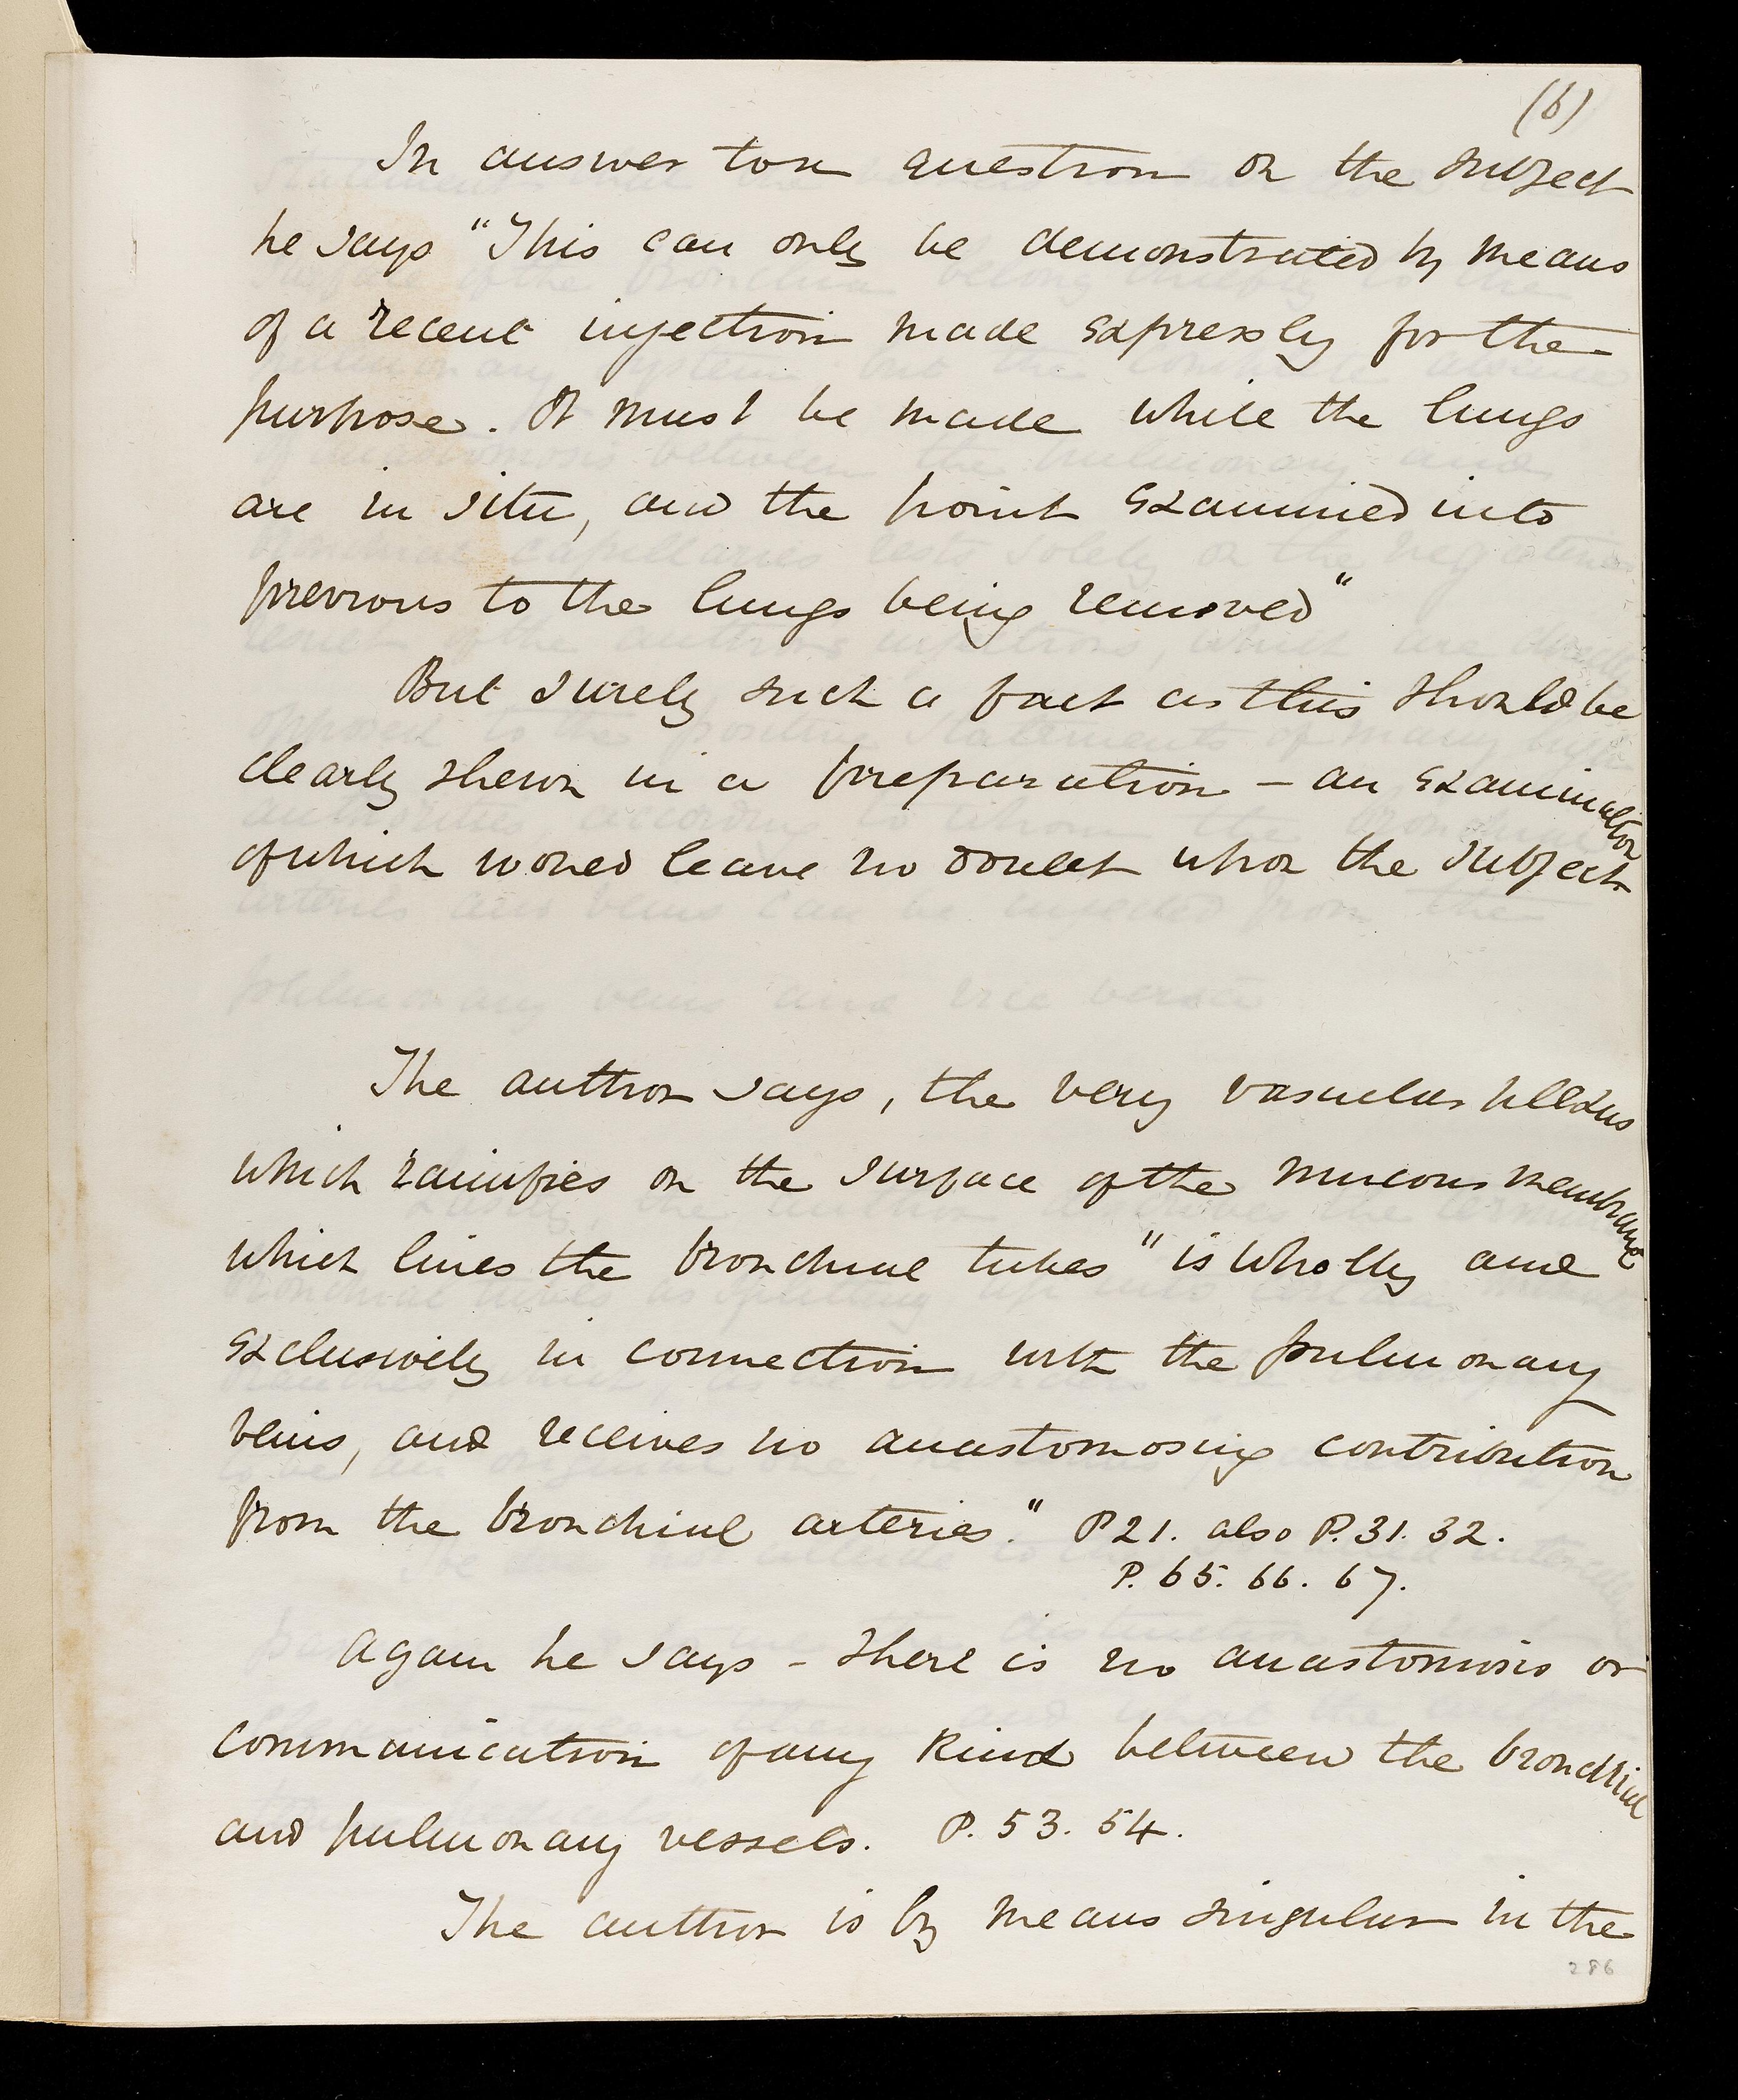 (6)
In answer to a question on the subject
he says "This can only be demonstrated by means
of a recent injection made expressly for the
purpose. It must be made while the lungs
are in situ, and the point examined into
previous to the lungs being removed"
But surely such a fact as this should be
clearly shewn in a preparation - an examination
of which would leave no doubt upon the subject
The author says, the very vascular plexus
which ramifies on the surface of the mucous membrane
which lines the bronchial tubes "is wholly and
exclusively in connection with the pulmonary
veins, and receives no anastomosing contribution
from the bronchial arteries." P 21. also P. 31. 32.
P. 65. 66. 67.
Again he says - there is no anastomosis or
communication of any kind between the bronchial
and pulmonary vessels. P. 53. 54.
The author is by means singular in the
286